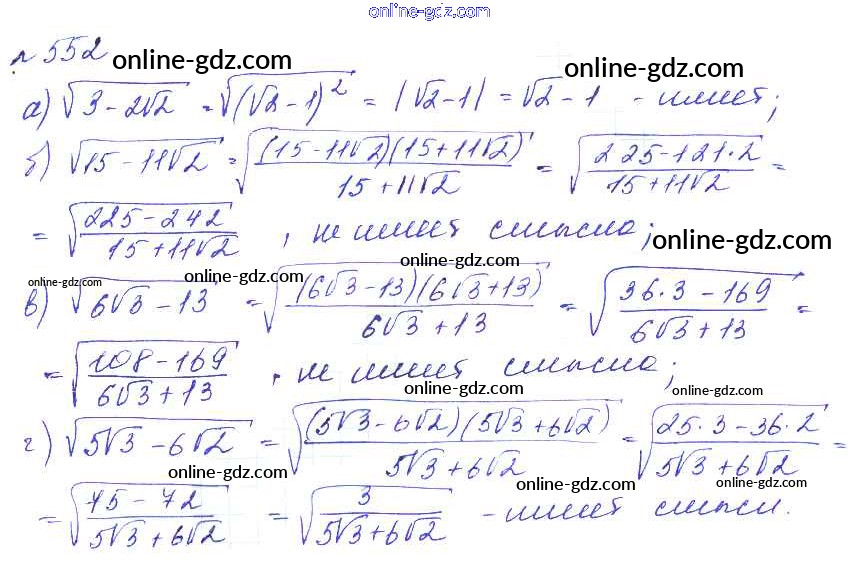 online-gdz.com
№ 552
online-gdz.com online-gdz.com
а) √(3 - 2√2) = √((√2 - 1)²) = |√2 - 1| = √2 - 1 - имеет;
б) √(15 - 11√2) = √((15 - 11√2)(15 + 11√2) / (15 + 11√2)) = √((225 - 121·2) / (15 + 11√2)) =
= √((225 - 242) / (15 + 11√2)), не имеет смысла;
online-gdz.com
online-gdz.com online-gdz.com online-gdz.com
в) √(6√3 - 13) = √((6√3 - 13)(6√3 + 13) / (6√3 + 13)) = √((36·3 - 169) / (6√3 + 13)) =
= √((108 - 169) / (6√3 + 13)), не имеет смысла;
online-gdz.com online-gdz.com
г) √(5√3 - 6√2) = √((5√3 - 6√2)(5√3 + 6√2) / (5√3 + 6√2)) = √((25·3 - 36·2) / (5√3 + 6√2)) =
online-gdz.com online-gdz.com
= √((75 - 72) / (5√3 + 6√2)) = √(3 / (5√3 + 6√2)) - имеет смысл.
online-gdz.com